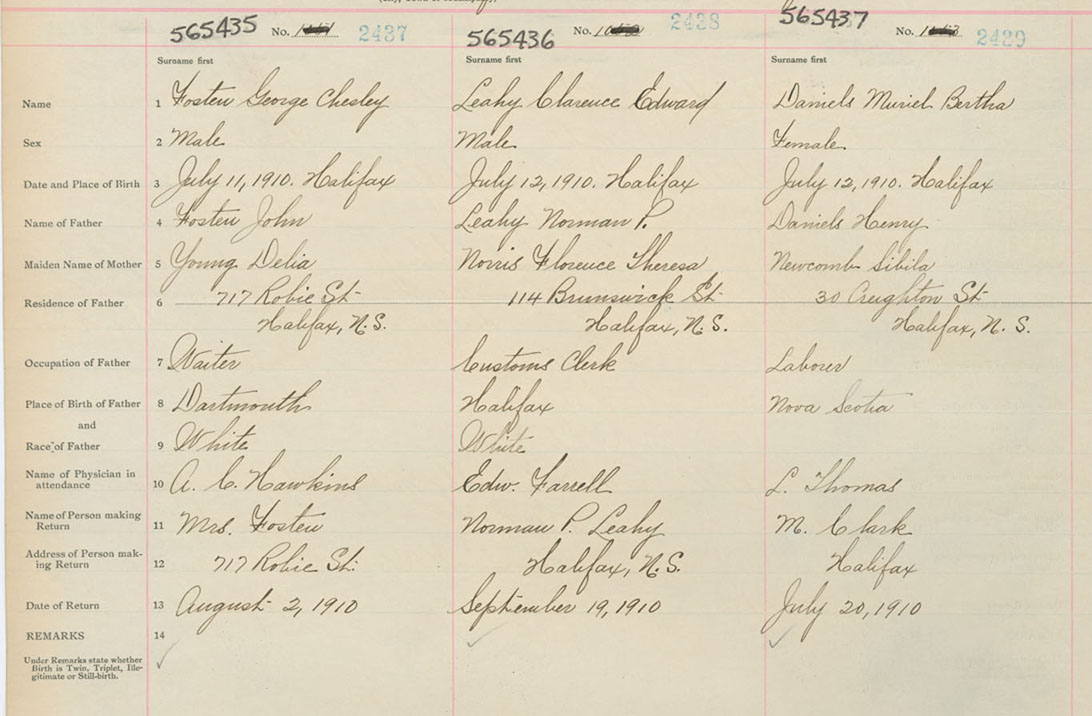 565435 No. 2437 565436 No. 2438 565437 No. 2439
Surname first Surname first Surname first
Name 1 Foster George Chesley Leahy Clarence Edward Daniels Muriel Bertha
Sex 2 Male Male Female
Date and Place of Birth 3 July 11, 1910. Halifax July 12, 1910. Halifax July 12, 1910. Halifax
Name of Father 4 Foster John Leahy Norman P. Daniels Henry
Maiden Name of Mother 5 Young Delia Norris Florence Theresa Newcomb Sibila
Residence of Father 6 717 Robie St. 114 Brunswick St 30 Creighton St
Halifax, N.S. Halifax, N.S. Halifax, N.S.
Occupation of Father 7 Waiter Customs Clerk Laborer
Place of Birth of Father 8 Dartmouth Halifax Nova Scotia
and
Race of Father 9 White White
Name of Physician in
attendance 10 A. C. Hawkins Edw. Farrell L. Thomas
Name of Person making
Return 11 Mrs. Foster Norman P. Leahy M. Clark
Address of Person mak-
ing Return 12 717 Robie St. Halifax, N.S. Halifax
Date of Return 13 August 2, 1910 September 19, 1910 July 20, 1910
REMARKS 14
Under Remarks state whether
Birth is Twin, Triplet, Ille-
gitimate or Still-birth.